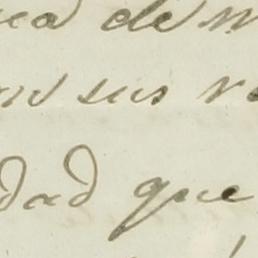 ca de m
n sus r
dad que